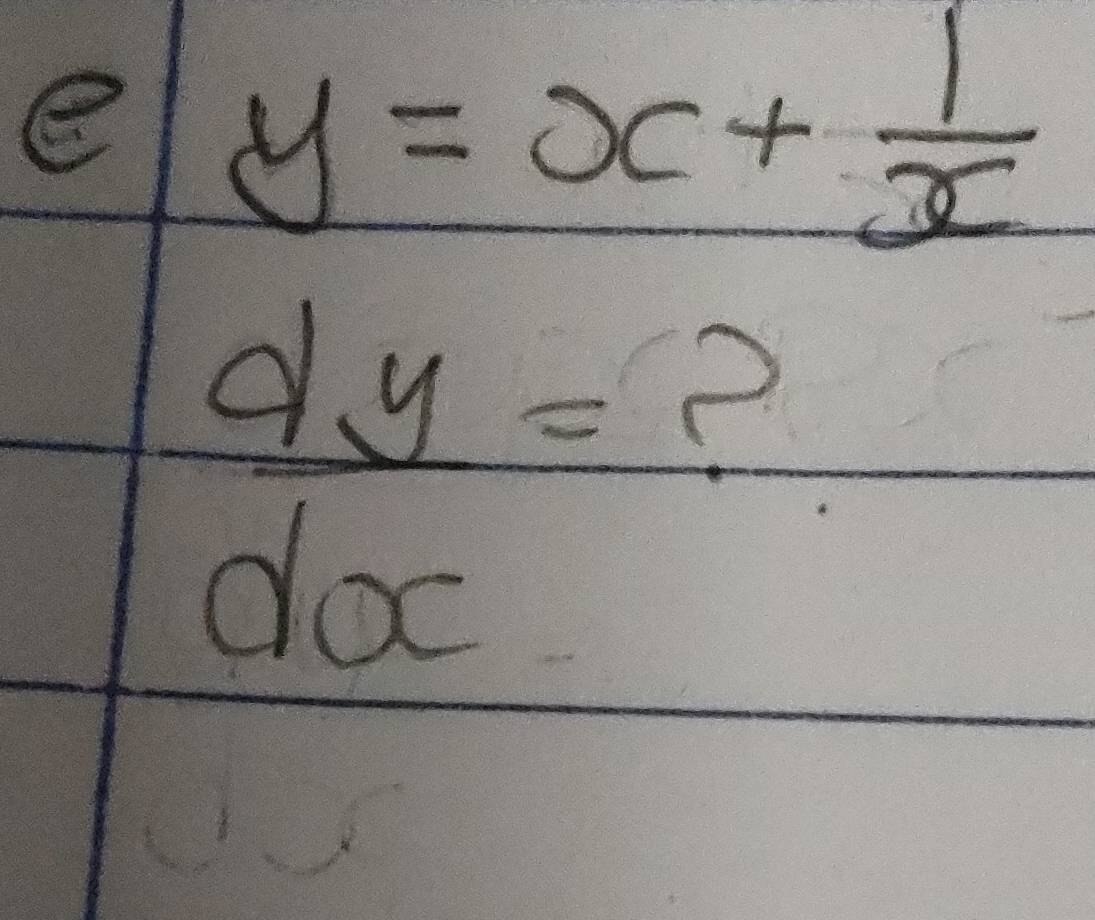 e y = x + 1/x
dy/dx = ?